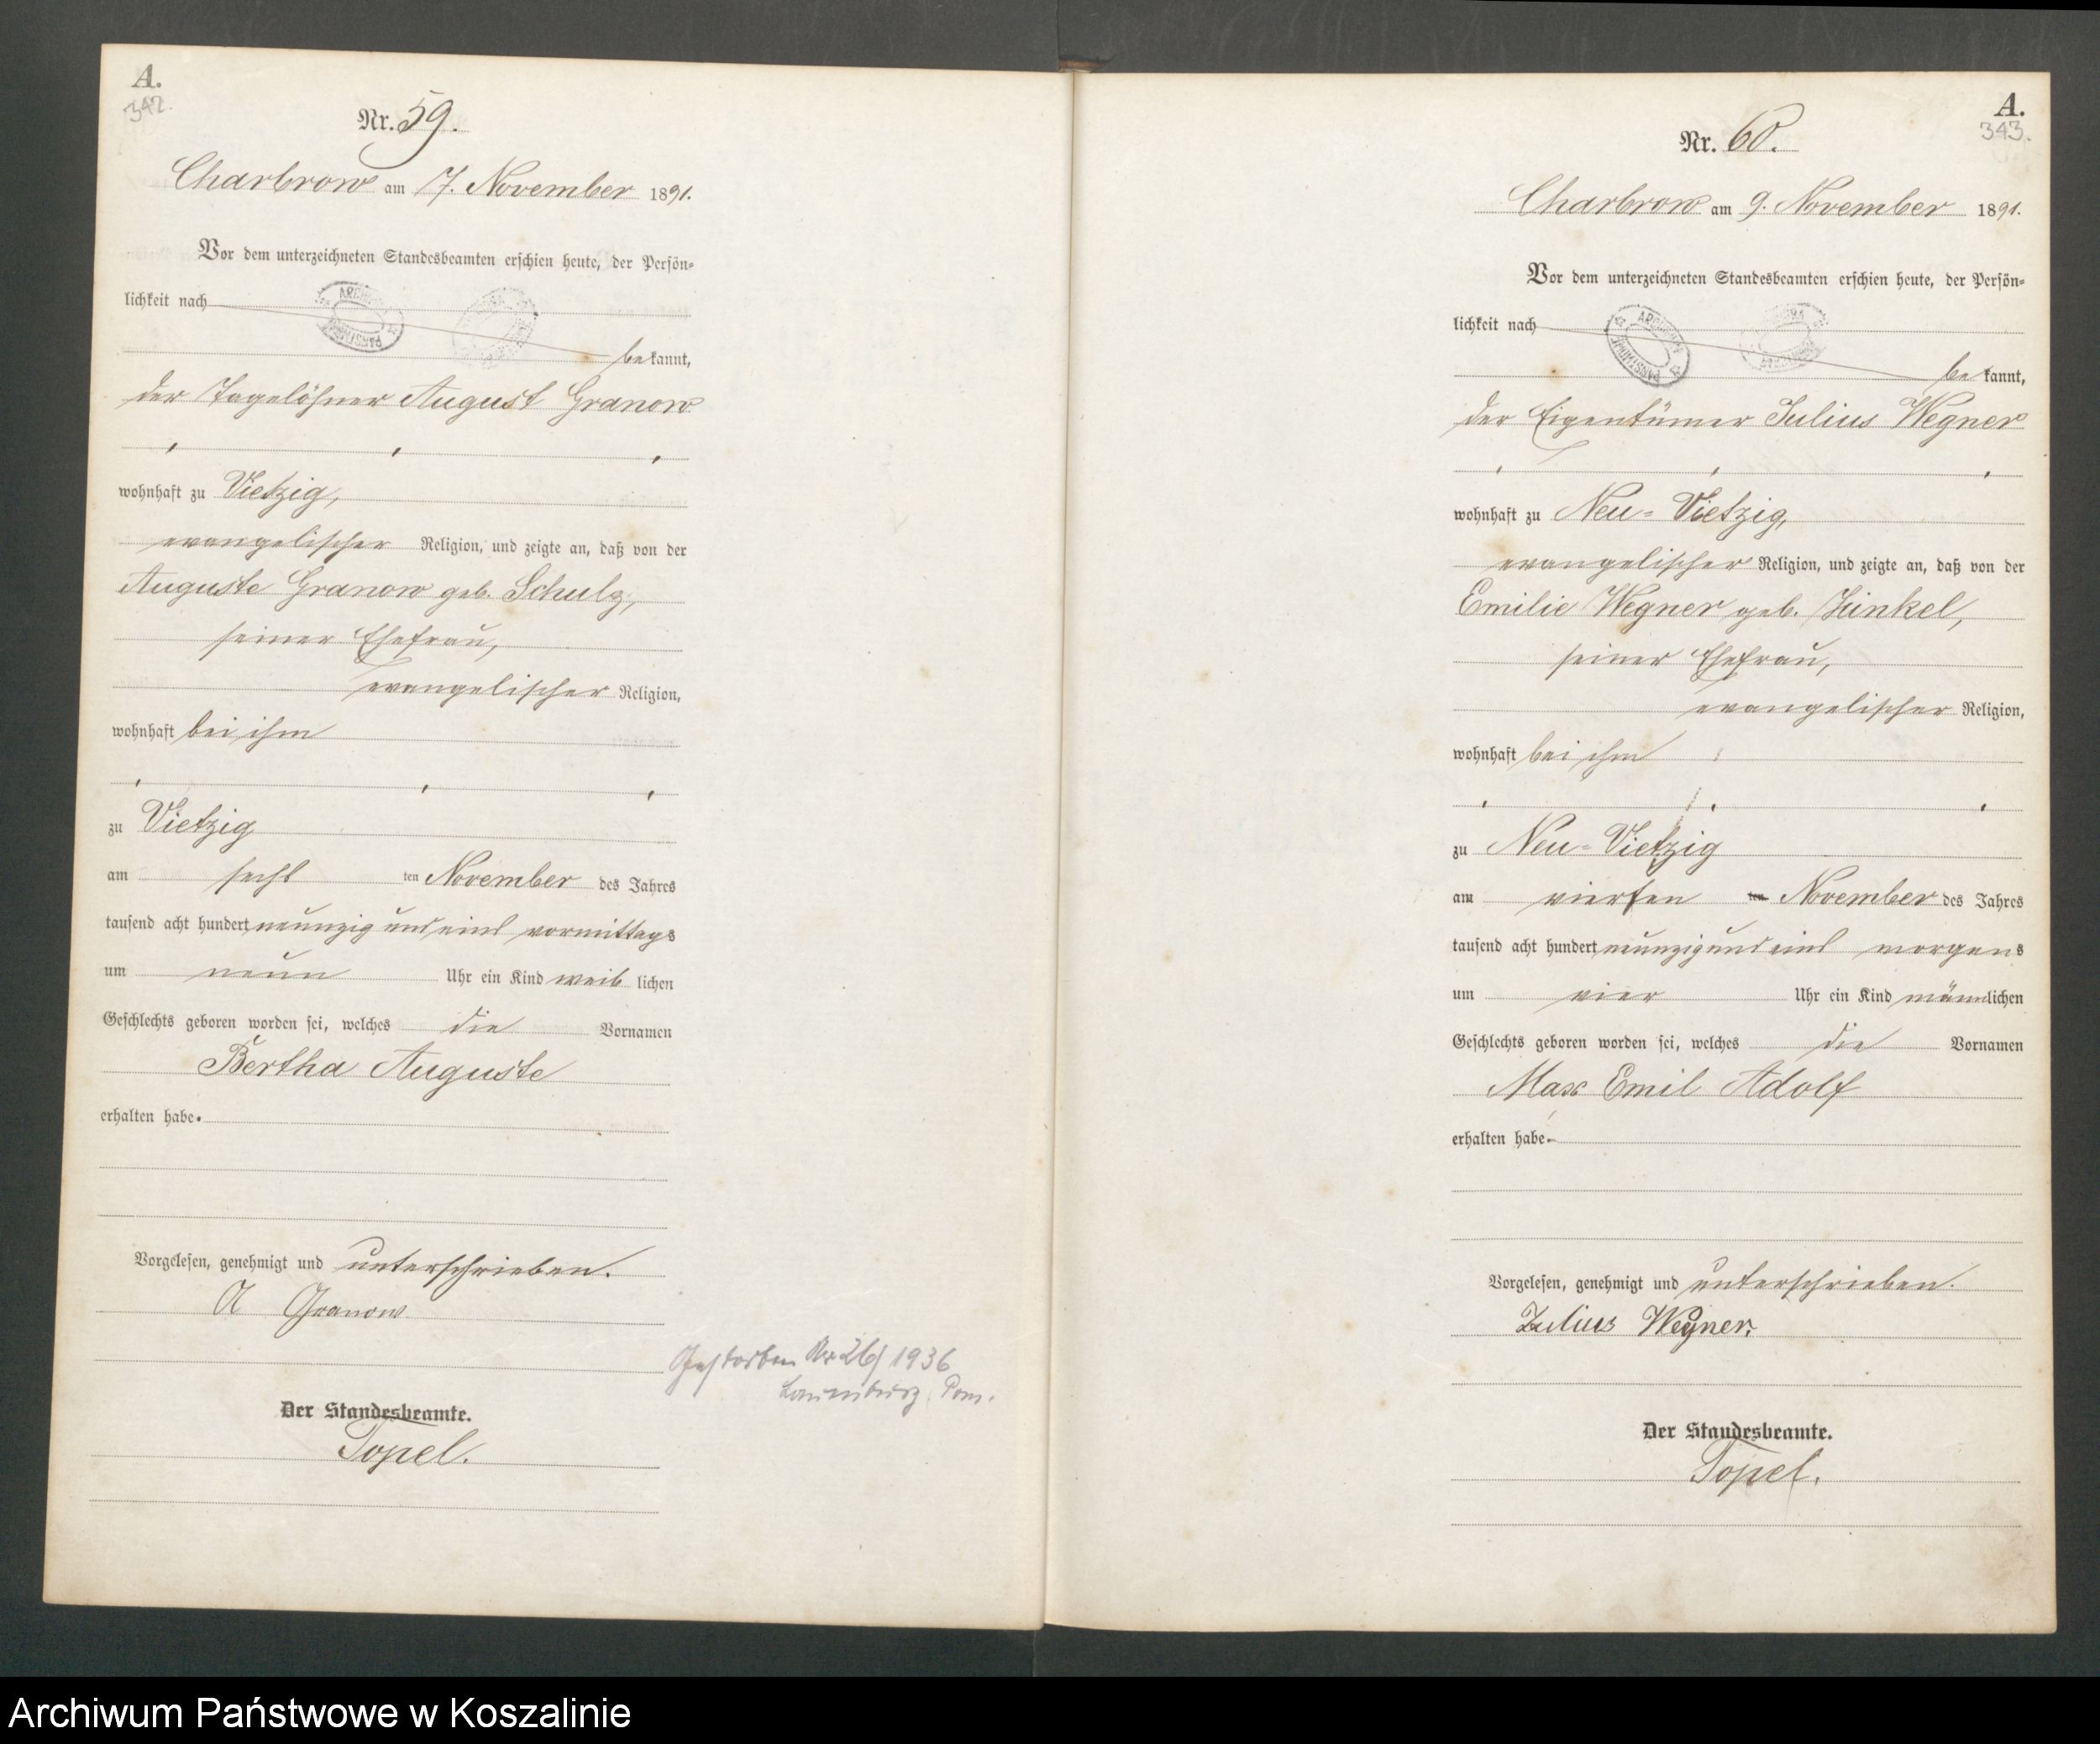 A.
342.
Nr. 59.
Charbrow am 7. November 1891.
Vor dem unterzeichneten Standesbeamten erschien heute, der Persön-
lichkeit nach
bekannt,
der Tagelöhner August Granow
wohnhaft zu Vietzig,
evangelischer Religion, und zeigte an, daß von der
Auguste Granow geb. Schulz,
seiner Ehefrau,
evangelischer Religion,
wohnhaft bei ihm
zu Vietzig
am sechsten November des Jahres
tausend acht hundert neunzig und eins vormittags
um neun Uhr ein Kind weiblichen
Geschlechts geboren worden sei, welches die Vornamen
Bertha Auguste
erhalten habe.
Vorgelesen, genehmigt und unterschrieben.
A Granow
Gestorben Nr 26/1936
Lauenburg Pom.
Der Standesbeamte.
Topel.
A.
343.
Nr. 60.
Charbrow am 9. November 1891.
Vor dem unterzeichneten Standesbeamten erschien heute, der Persön-
lichkeit nach
bekannt,
der Eigentümer Julius Wegner
wohnhaft zu Neu-Vietzig,
evangelischer Religion, und zeigte an, daß von der
Emilie Wegner geb.
seiner Ehefrau,
evangelischer Religion,
wohnhaft bei ihm
zu Neu-Vietzig
am vierten ten November des Jahres
tausend acht hundert neunzig und eins morgens
um vier Uhr ein Kind männlichen
Geschlechts geboren worden sei, welches die Vornamen
Max Emil Adolf
erhalten habe.
Vorgelesen, genehmigt und unterschrieben.
Julius Wegner.
Der Standesbeamte.
Topel.
Archiwum Państwowe w Koszalinie